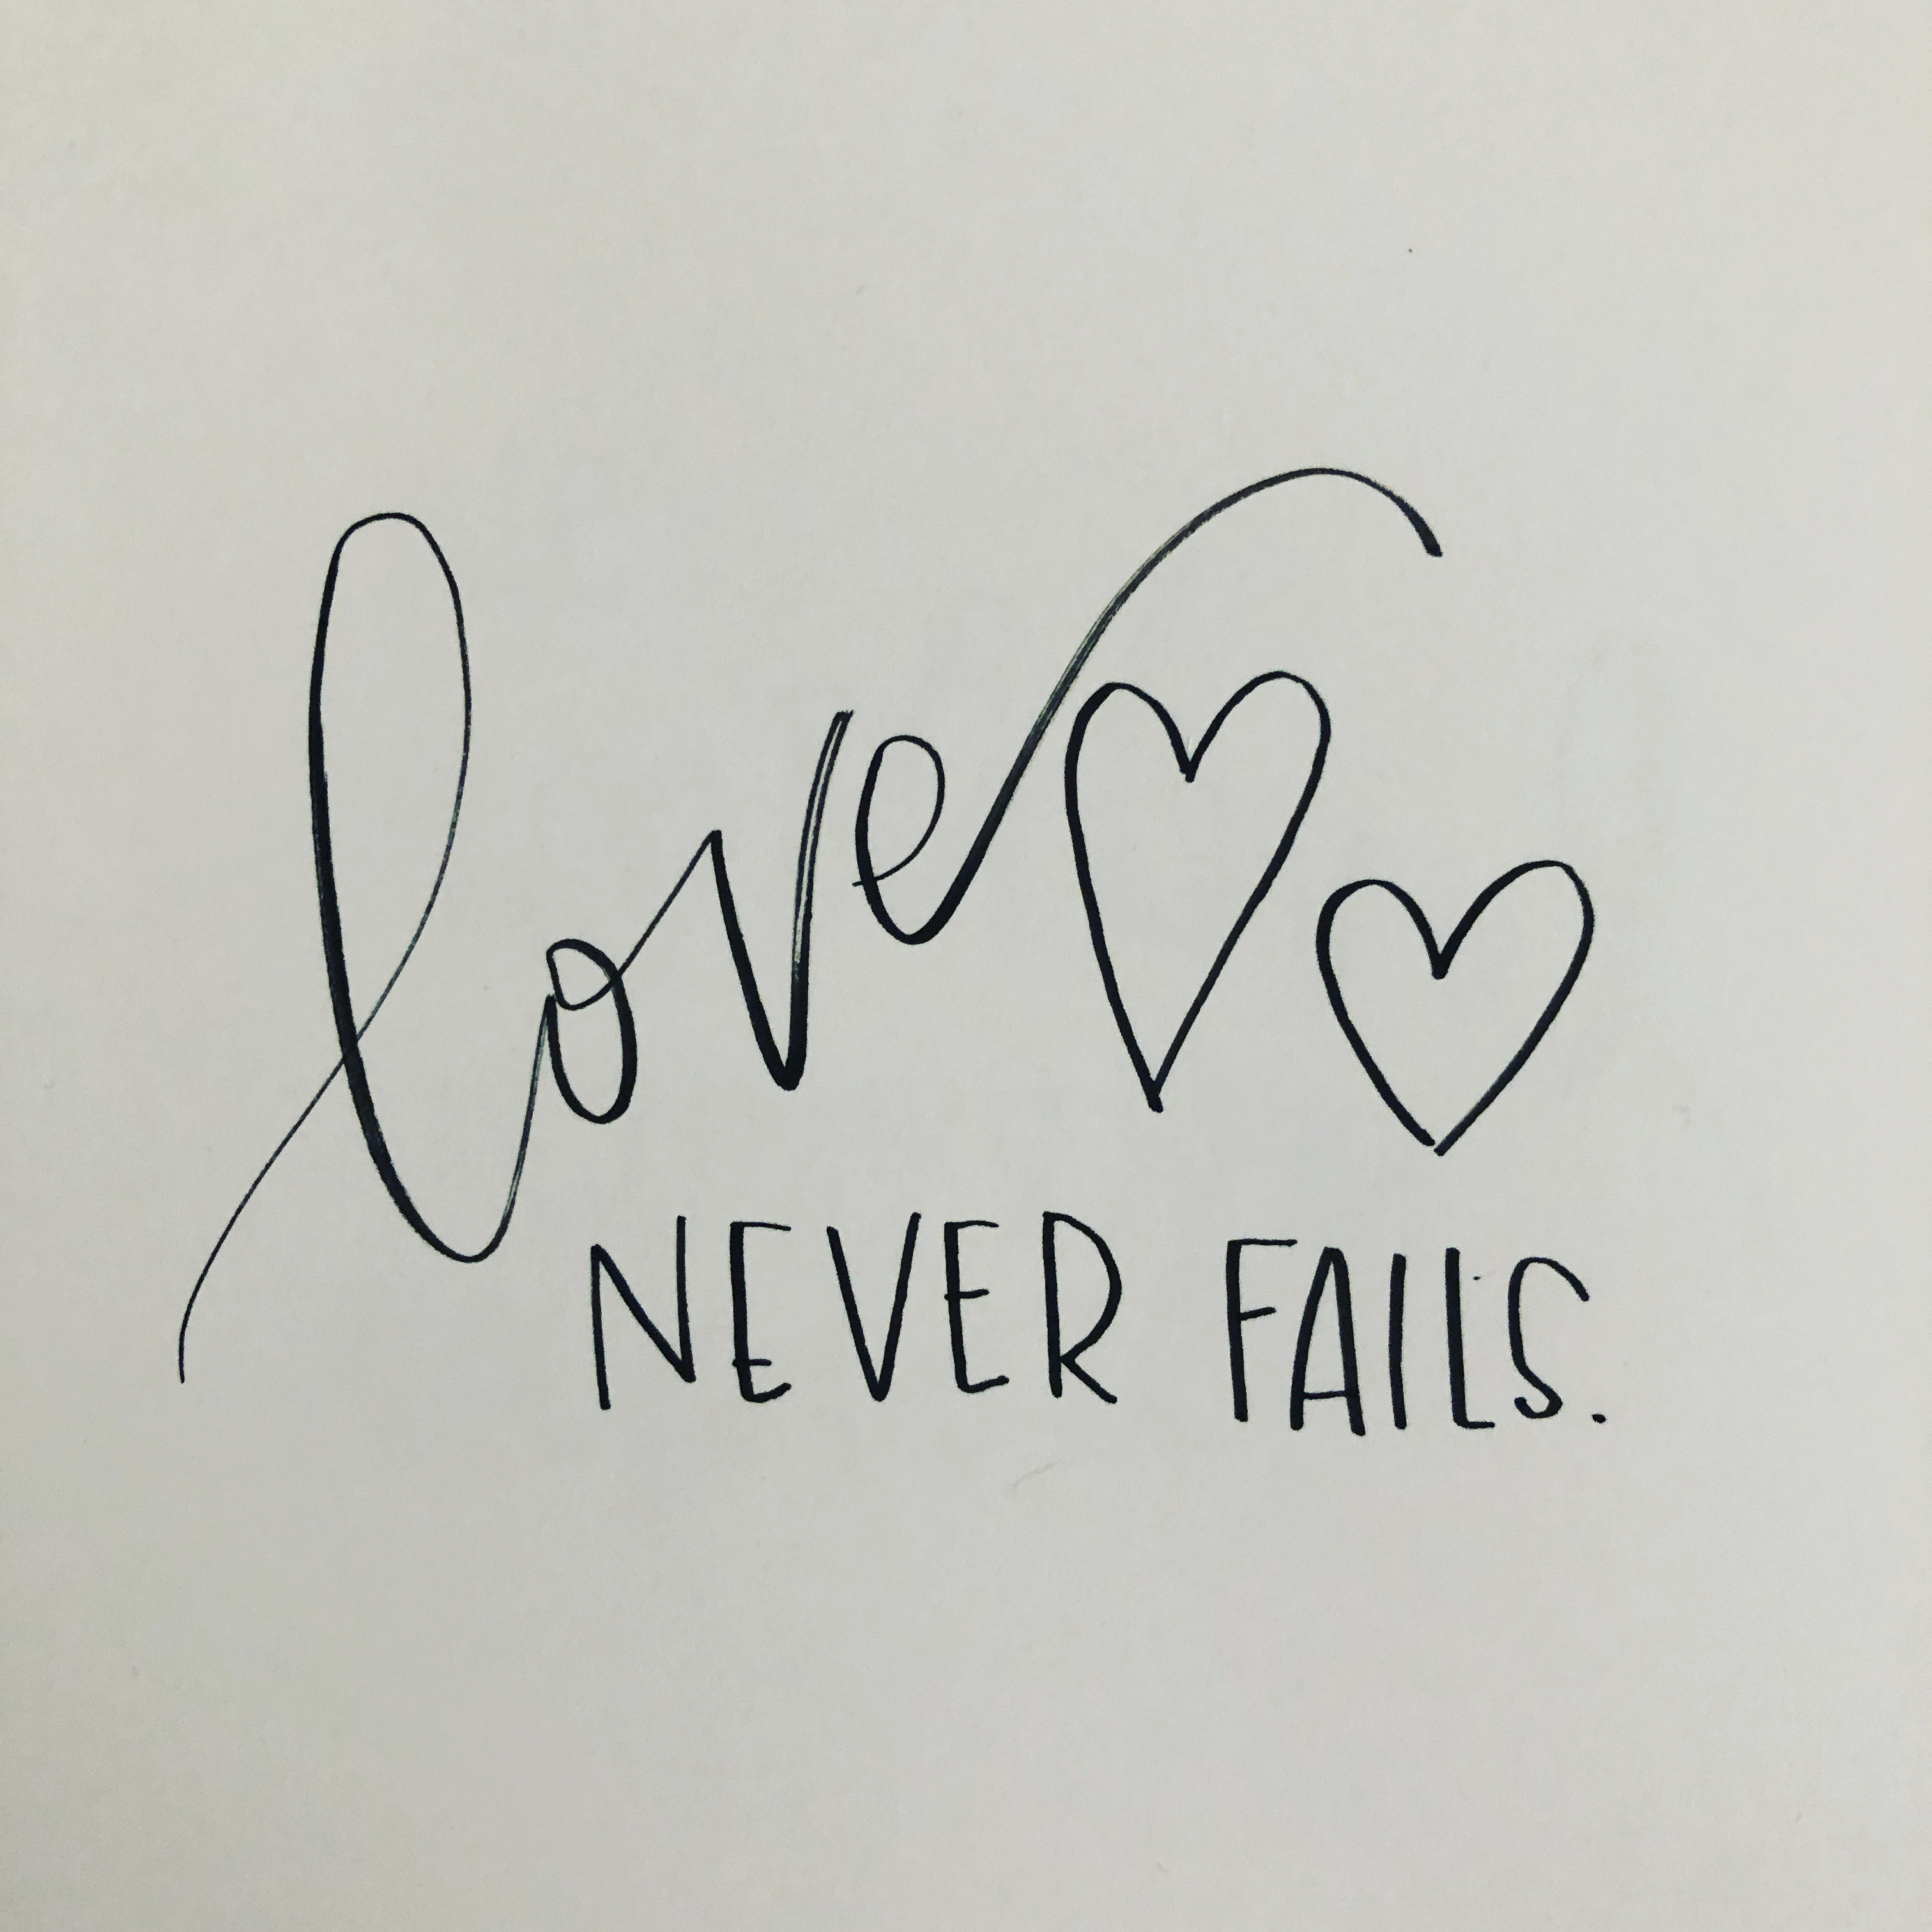 love
NEVER FAILS.